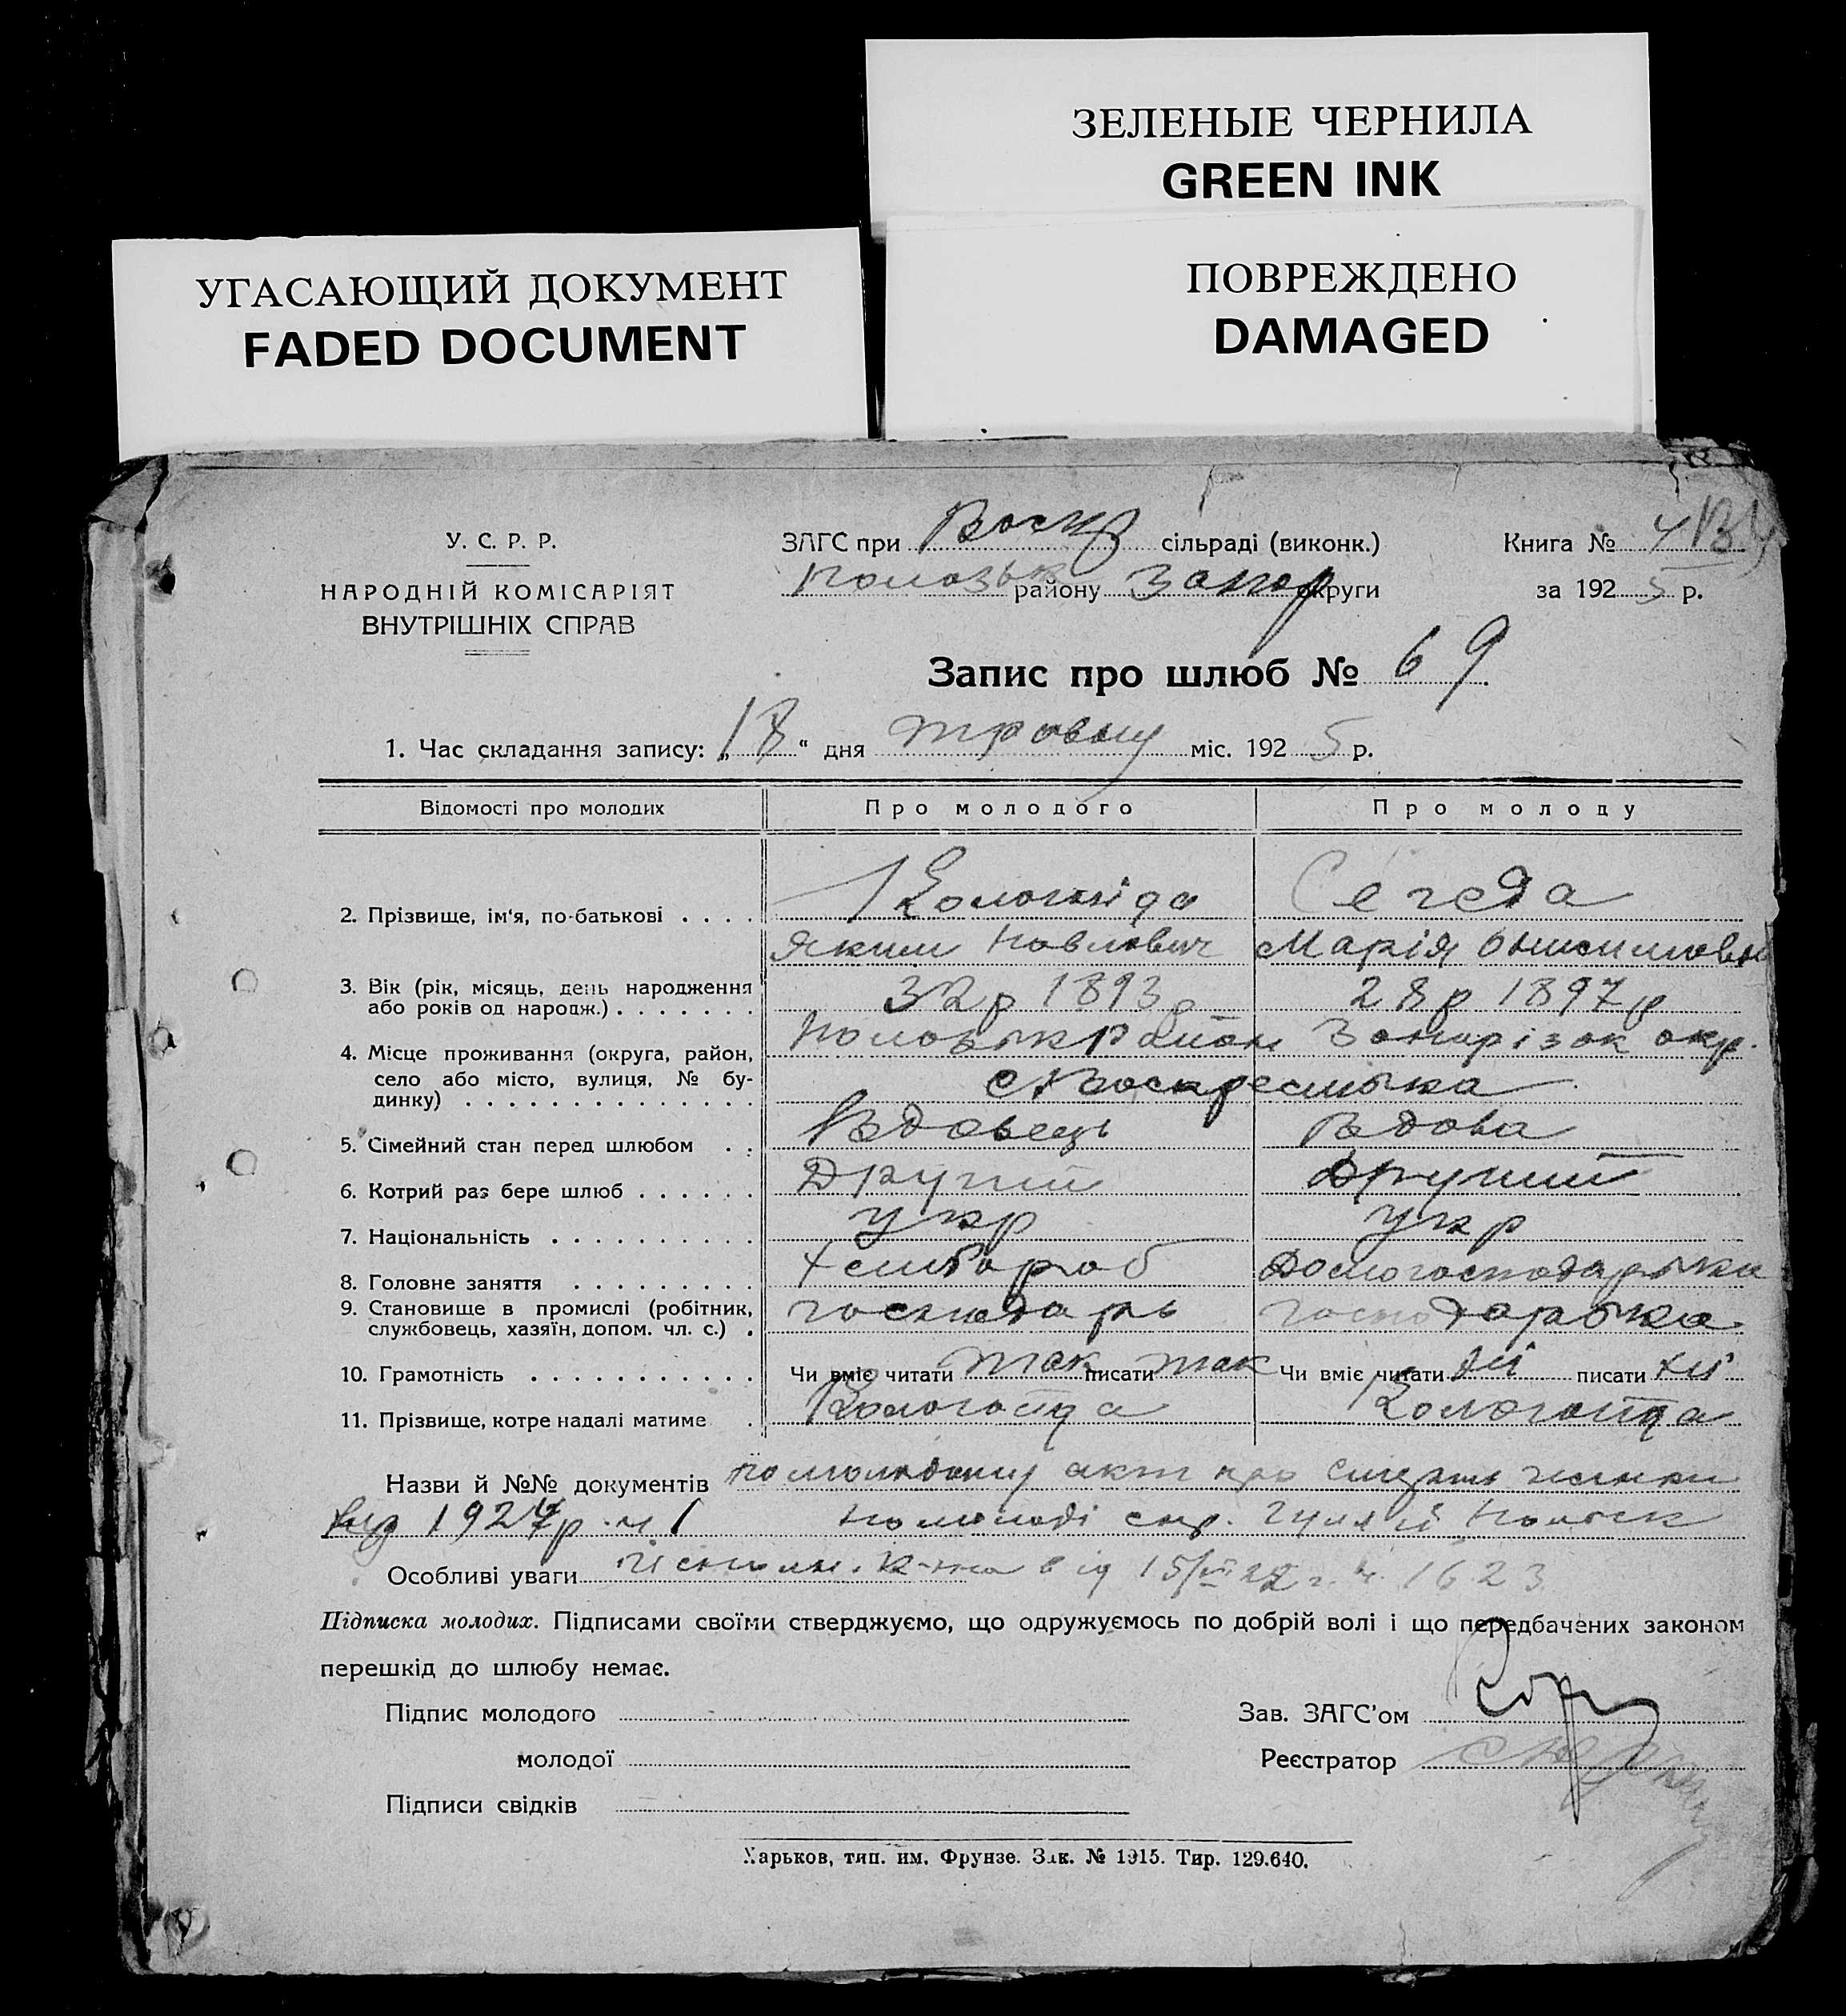 ЗЕЛЕНЫЕ ЧЕРНИЛА
GREEN INK
УГАСАЮЩИЙ ДОКУМЕНТ
FADED DOCUMENT
ПОВРЕЖДЕНО
DAMAGED
У. С. Р. Р.
НАРОДНІЙ КОМІСАРІЯТ
ВНУТРІШНІХ СПРАВ
ЗАГС при Воскр сільраді (виконк.)
Пологівськ району Запор округи
Книга № 4
за 1925 р.
Запис про шлюб № 69
1. Час складання запису: „18“ дня травня міс. 1925 р.
Відомості про молодих Про молодого Про молоду
2. Прізвище, ім'я, по-батькові . . . . Сегеда
Яким Павлович Марія Онисимовна
3. Вік (рік, місяць, день народження
або років од народж.) . . . . . . . 32 р 1893 р 28 р 1897 р
4. Місце проживання (округа, район,
село або місто, вулиця, № бу-
динку) . . . . . . . . . . . . . . .
район окр.
с Воскресенька
5. Сімейний стан перед шлюбом . . Вдовець Вдова
6. Котрий раз бере шлюб . . . . . . Другий Другий
7. Національність . . . . . . . . . . укр укр
8. Головне заняття . . . . . . . . . Хлібороб Домогосподарька
9. Становище в промислі (робітник,
службовець, хазяїн, допом. чл. с.) . господарь господарька
10. Грамотність . . . . . . . . . . . Чи вміє читати так писати так Чи вміє читати ні писати ні
11. Прізвище, котре надалі матиме . Кологойда Кологойда
Назви й №№ документів акт про смерть жінки
від 1924 р. № 1 по молоді Гуляй Польск
Особливі уваги від 15/ 22 г. № 1623
Підписка молодих. Підписами своїми стверджуємо, що одружуємось по добрій волі і що передбачених законом
перешкід до шлюбу немає.
Підпис молодого
молодої
Підписи свідків
Зав. ЗАГС'ом
Реєстратор
Харьков, тип. им. Фрунзе. Зак. № 1915. Тир. 129.640.